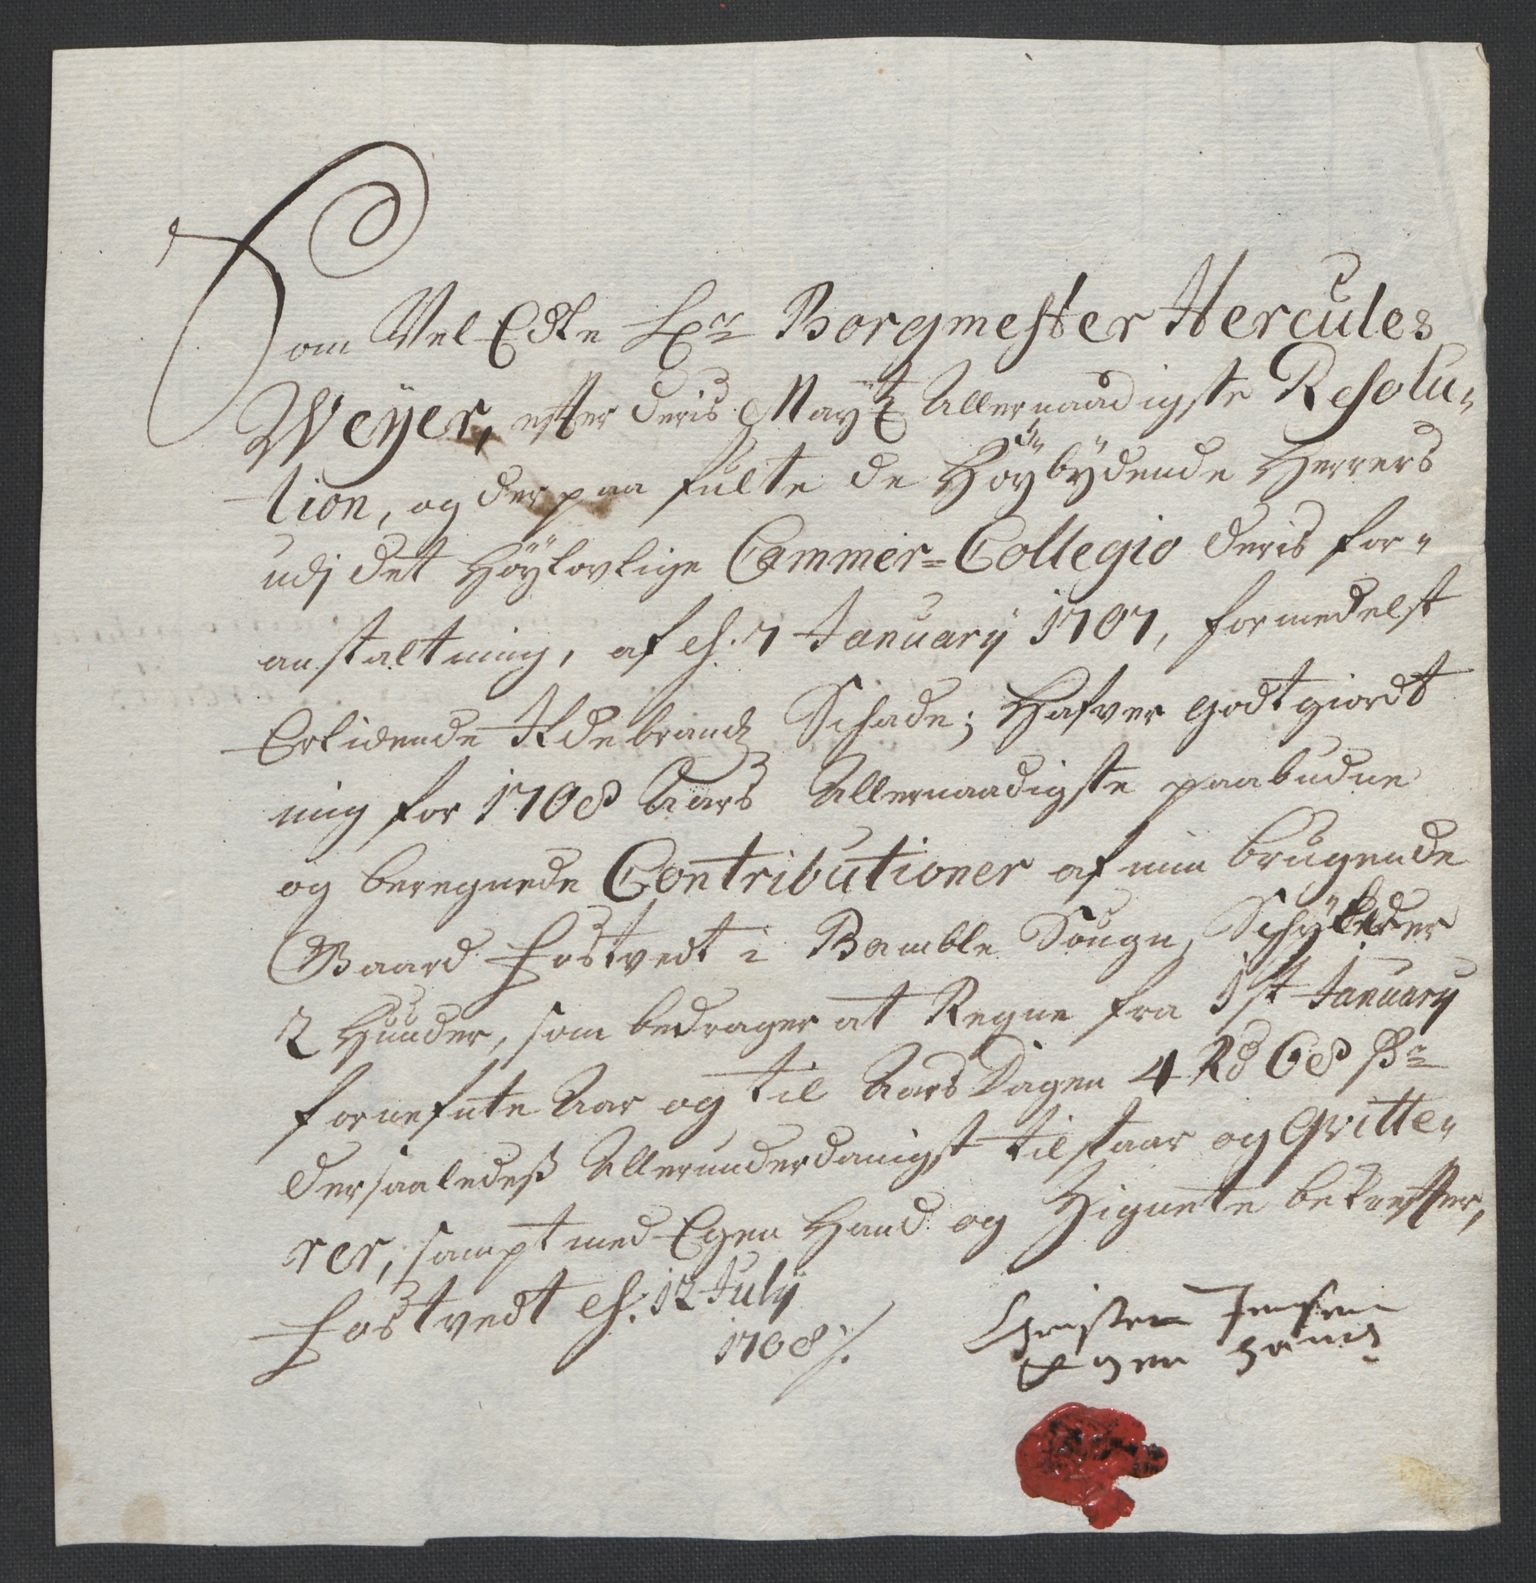 Som Vel Edle Hr Borgmester Hercules
Weÿer, efter deris Mayts Allernaadigste Resolu-
tion, og der paa fulte de Höÿbÿdende Herrers
udj det Höÿlovlige Cammer-Collegio deris for-
anstaltning, af d. 7 Januarij 1707, formedelst
Erlidende Ildebrands Schade; Hafver godtgiordt
mig for 1708 Aars Allernaadigste paabudne
og beregnede Contributioner af min brugende
Gaard Fostvedt i Bamble Sougn, Schÿlder
2 Huuder, som bedrager at Regne fra 1st January
fornefnte Aar og til Aars Dagen 4 Rd 68 s
dersaaledeß Allerunderdanigst tilstaar og Qvitte-
rer, sampt med Egen Hand og Zignete bekrefter,
Fostvedt d. 12 Julij
1708 ⁒
Christen Jensen
Egen Hand